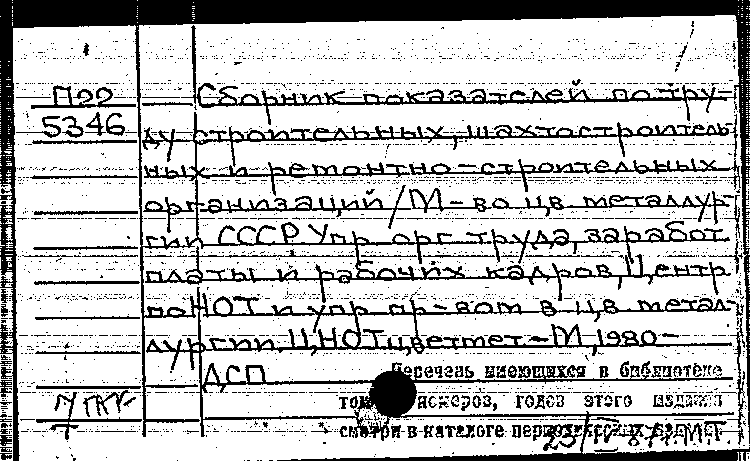 П22 Сборник показателей по тру-
5346 ду строительных, шахтостроитель-
ных и ремонтно-строительных
организаций/М-во цв металлур-
гии СССР Упр. орг. труда, заработ.
платы и рабочих кадров, Центр
по НОТ и упр. пр-вом в цв. метал-
лургии ЦНОТцветмет - М, 1980-
ДСП Перечень имеющихся в библиотеке
номеров, годов этого издания
смотри в каталоге периодических
23/IV-